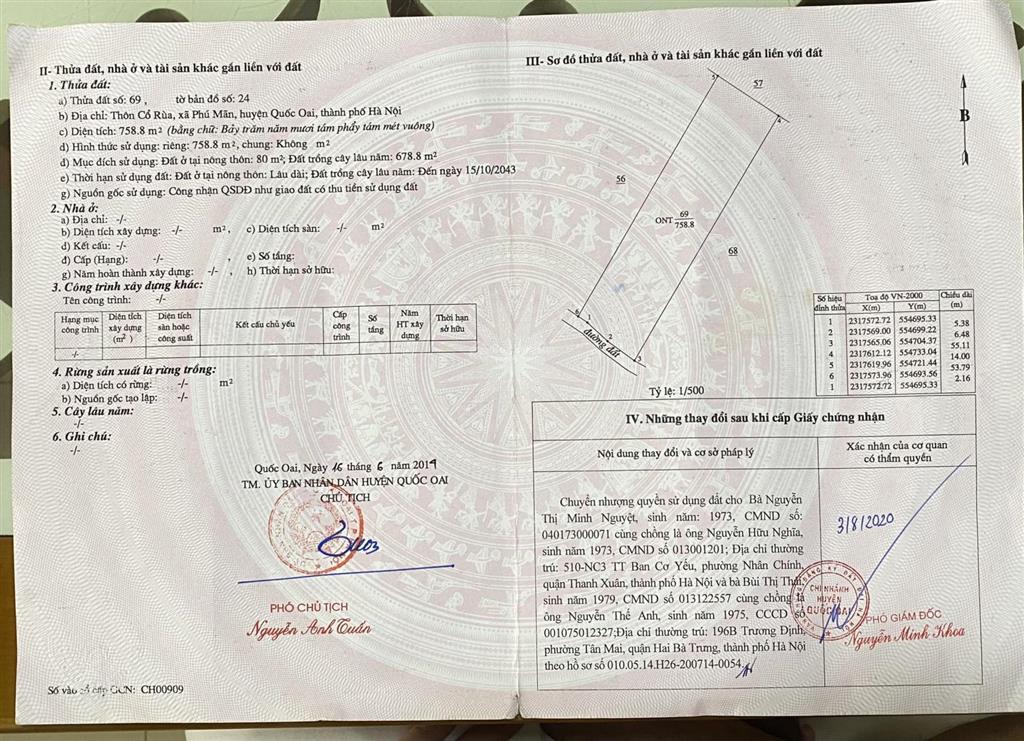 II- Thửa đất, nhà ở và tài sản khác gắn liền với đất
1. Thửa đất:
a) Thửa đất số: 69 , tờ bản đồ số: 24
b) Địa chỉ: Thôn Cổ Rùa, xã Phú Mãn, huyện Quốc Oai, thành phố Hà Nội
c) Diện tích: 758.8 m² (bằng chữ: Bảy trăm năm mươi tám phẩy tám mét vuông)
d) Hình thức sử dụng: riêng: 758.8 m², chung: Không m²
đ) Mục đích sử dụng: Đất ở tại nông thôn: 80 m²; Đất trồng cây lâu năm: 678.8 m²
e) Thời hạn sử dụng đất: Đất ở tại nông thôn: Lâu dài; Đất trồng cây lâu năm: Đến ngày 15/10/2043
g) Nguồn gốc sử dụng: Công nhận QSDĐ như giao đất có thu tiền sử dụng đất
2. Nhà ở:
a) Địa chỉ: -/-
b) Diện tích xây dựng: -/- m² , c) Diện tích sàn: -/- m²
d) Kết cấu: -/-
đ) Cấp (Hạng): -/- , e) Số tầng:
g) Năm hoàn thành xây dựng: -/- , h) Thời hạn sở hữu:
3. Công trình xây dựng khác:
Tên công trình: -/-
Hạng mục công trình | Diện tích xây dựng (m²) | Diện tích sàn hoặc công suất | Kết cấu chủ yếu | Cấp công trình | Số tầng | Năm HT xây dựng | Thời hạn sở hữu
-/-
4. Rừng sản xuất là rừng trồng:
a) Diện tích có rừng: -/- m²
b) Nguồn gốc tạo lập: -/-
5. Cây lâu năm:
-/-
6. Ghi chú:
-/-
Quốc Oai, Ngày 16 tháng 6 năm 2014
TM. ỦY BAN NHÂN DÂN HUYỆN QUỐC OAI
CHỦ TỊCH
PHÓ CHỦ TỊCH
Nguyễn Anh Tuấn
Số vào sổ cấp GCN: CH00909
III- Sơ đồ thửa đất, nhà ở và tài sản khác gắn liền với đất
5
57
4
B
56
ONT 69
758.8
68
6
1
2
3
đường đất
Tỷ lệ: 1/500
Số hiệu đỉnh thửa | Toạ độ VN-2000 | Chiều dài (m)
X(m) | Y(m)
1 2317572.72 554695.33
5.38
2 2317569.00 554699.22
6.48
3 2317565.06 554704.37
55.11
4 2317612.12 554733.04
14.00
5 2317619.96 554721.44
53.79
6 2317573.96 554693.56
2.16
1 2317572.72 554695.33
IV. Những thay đổi sau khi cấp Giấy chứng nhận
Nội dung thay đổi và cơ sở pháp lý
Xác nhận của cơ quan
có thẩm quyền
Chuyển nhượng quyền sử dụng đất cho Bà Nguyễn
Thị Minh Nguyệt, sinh năm: 1973, CMND số:
040173000071 cùng chồng là ông Nguyễn Hữu Nghĩa,
sinh năm 1973, CMND số 013001201; Địa chỉ thường
trú: 510-NC3 TT Ban Cơ Yếu, phường Nhân Chính,
quận Thanh Xuân, thành phố Hà Nội và bà Bùi Thị Thái,
sinh năm 1979, CMND số 013122557 cùng chồng là
ông Nguyễn Thế Anh, sinh năm 1975, CCCD số
001075012327;Địa chỉ thường trú: 196B Trương Định,
phường Tân Mai, quận Hai Bà Trưng, thành phố Hà Nội
theo hồ sơ số 010.05.14.H26-200714-0054.
3/8/2020
CHI NHÁNH
HUYỆN
QUỐC OAI
PHÓ GIÁM ĐỐC
Nguyễn Minh Khoa